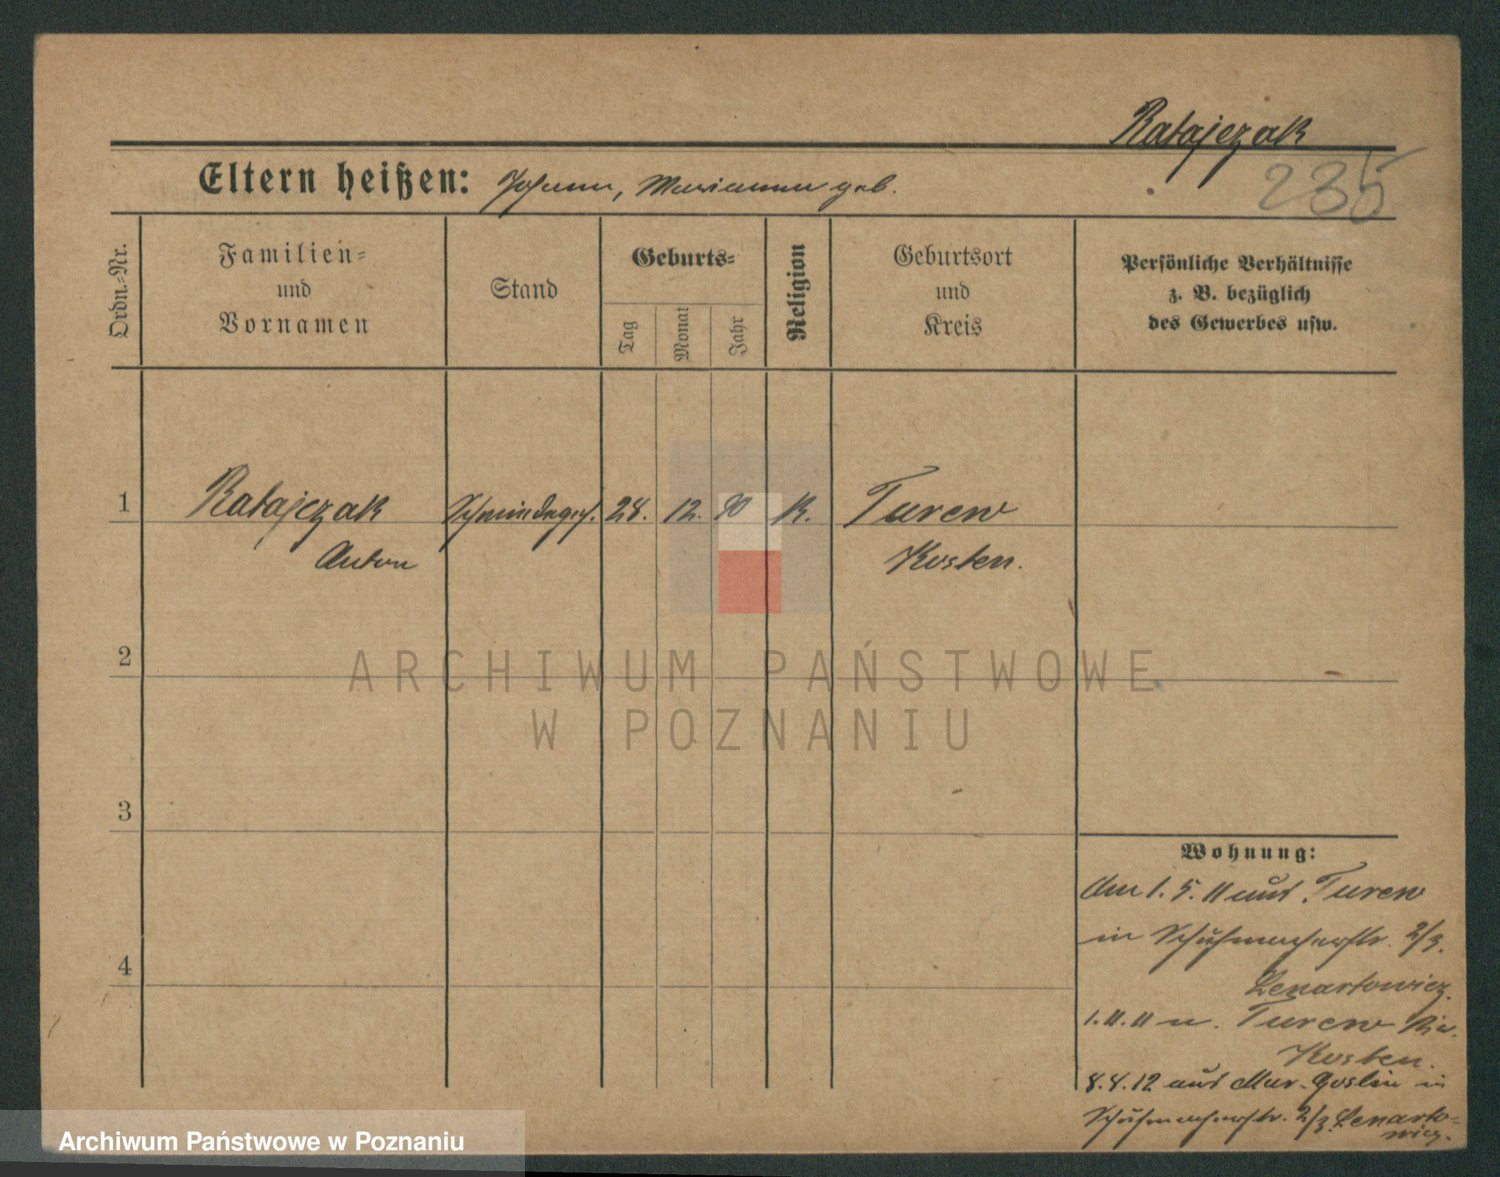 Ratajczak
235
Eltern heißen: Johann, Marianna geb.
Ordn.-Nr.
Familien-
und
Vornamen
Stand
Geburts-
Tag
Monat
Jahr
Religion
Geburtsort
und
Kreis
Persönliche Verhältnisse
z. B. bezüglich
des Gewerbes usw.
1 Ratajczak Schmiedeges. 28. 12. 90 K. Turew
Anton Kosten.
2
ARCHIWUM PAŃSTWOWE
W POZNANIU
3
Wohnung:
Am 1. 5. 11 aus Turew
in Schuhmacherstr. 2/3.
4
Lenartowicz.
1. 11. 11 n. Turew Kr.
Kosten.
8. 4. 12 aus Mur. Goslin in
Schuhmacherstr. 2/3 Lenarto-
wicz.
Archiwum Państwowe w Poznaniu